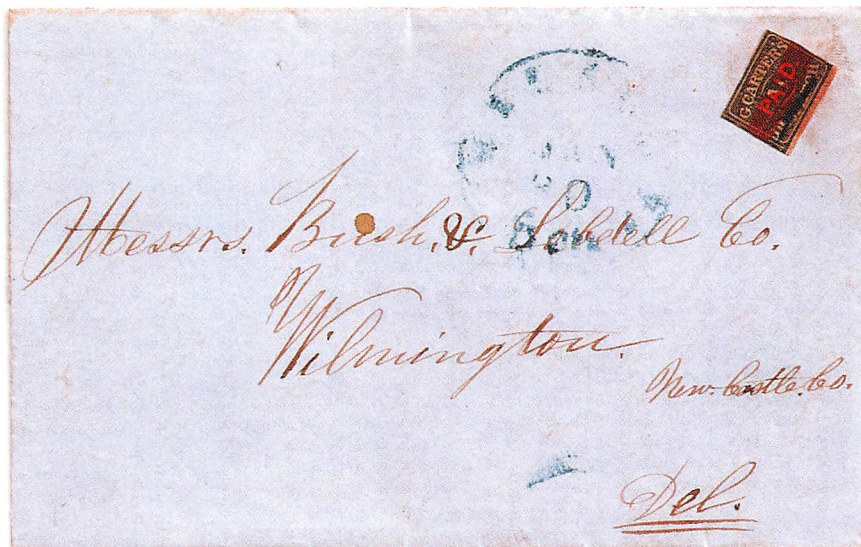 G. CARTER'S
PAID
JAN
Messrs. Bush, &. Lobdell Co.
Wilmington.
New-Castle. Co.
Del.